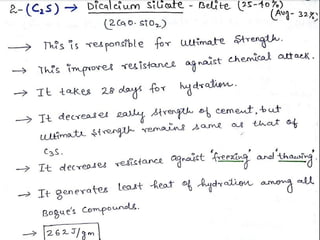 2-(C₂S) → Dicalcium Siliate - Belite (25-40%)
(2CaO.SiO₂) (Avg- 32%)
→ This is responsible for Ultimate Strength.
→ This improves resistance agnaist chemical attack.
→ It takes 28 days for hydration.
→ It decreases eally strength of cement, but
ultimate strength remains same as that of
C₃S.
→ It decreases resistance agnaist "freezing" and "thawing"
→ It generates least heat of hydration among all
Bogue's Compounds.
→ 262 J/gm